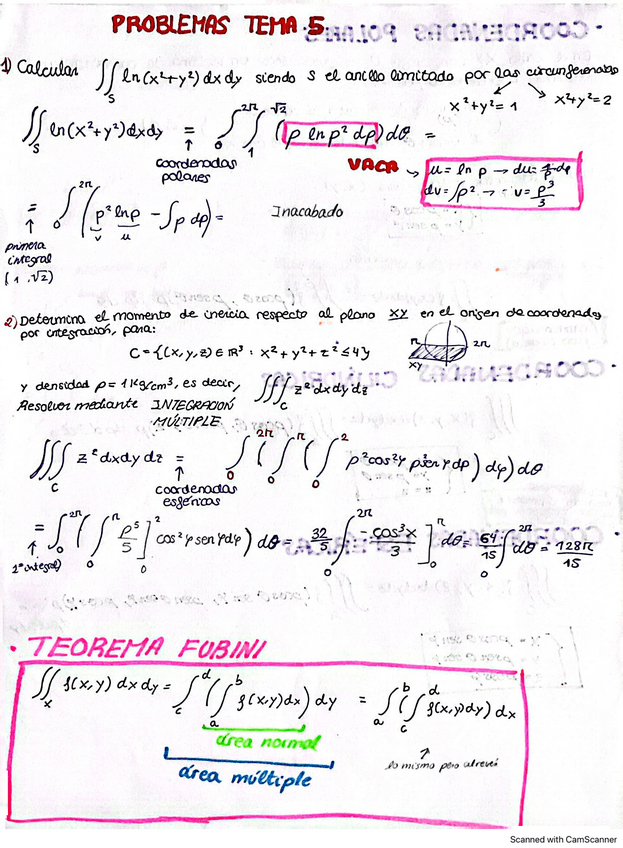 PROBLEMAS TEMA 5
1) Calcular ∬_S ln(x²+y²) dx dy siendo S el anillo limitado por las circunferencias
x²+y²=1 x²+y²=2
∬_S ln(x²+y²)dxdy = ∫_0^2π ∫_1^√2 (ρ ln ρ² dρ) dθ =
coordenadas
polares
VACA → u = ln ρ → du = 1/ρ dρ
dv = ∫ρ² → v = ρ³/3
= ∫_0^2π (ρ² lnρ − ∫ρ dρ) = Inacabado
v u
primera
integral
(1, √2)
2) Determina el momento de inercia respecto al plano XY en el origen de coordenadas
por integración, para:
C = {(x,y,z) ∈ ℝ³ : x²+y²+z² ≤ 4}
π 2π
XY
y densidad ρ = 1 kg/cm³, es decir, ∭_C z² dx dy dz
Resolver mediante INTEGRACIÓN
MÚLTIPLE
∭_C z² dxdy dz = ∫_0^2π (∫_0^π (∫_0^2 ρ²cos²φ ρ²senφ dρ) dφ) dθ
coordenadas
esféricas
= ∫_0^2π (∫_0^π ρ⁵/5]_0^2 cos²φ senφ dφ) dθ = 32/5 ∫_0^2π −cos³x/3]_0^π dθ = 64/15 ∫_0^2π dθ = 128π/15
1ª integral)
• TEOREMA FUBINI
∬_X f(x,y) dx dy = ∫_c^d (∫_a^b f(x,y)dx) dy = ∫_a^b (∫_c^d f(x,y)dy) dx
área normal
área múltiple
lo mismo pero alrevés
Scanned with CamScanner